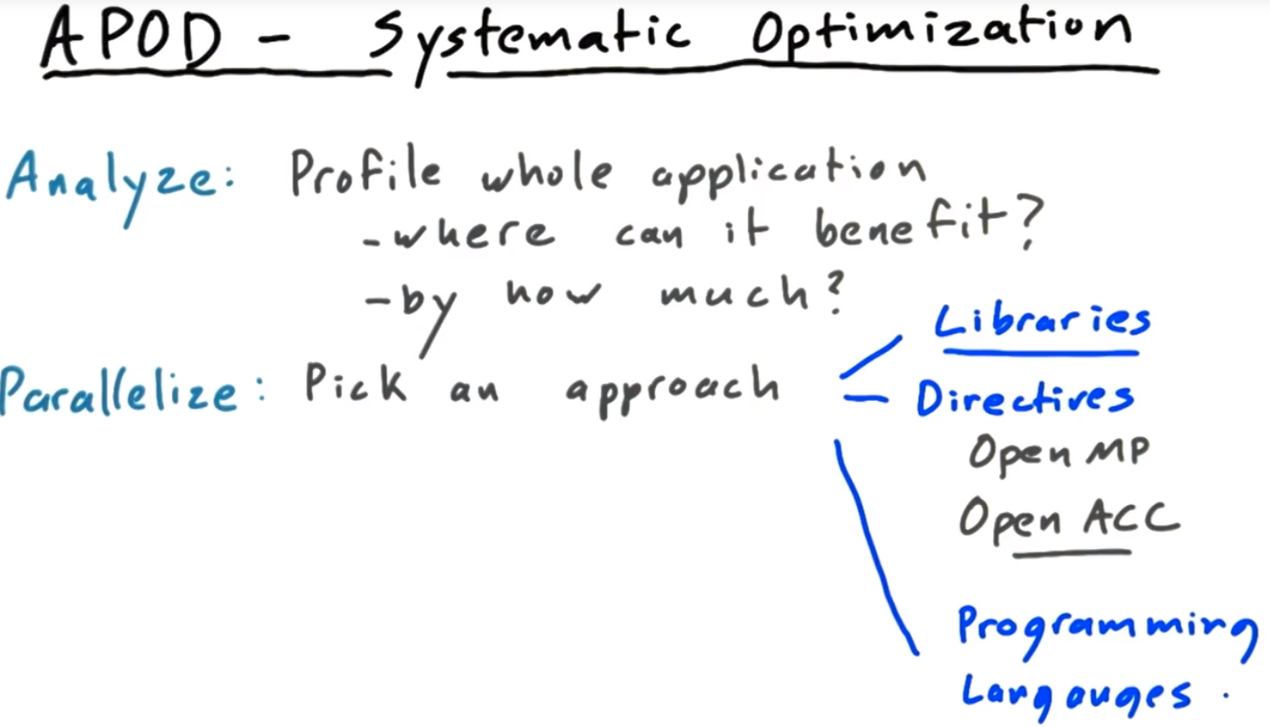 APOD - Systematic Optimization
Analyze: Profile whole application
-where can it benefit?
-by how much?
Parallelize: Pick an approach
Libraries
Directives
Open MP
Open ACC
Programming
Langauges.